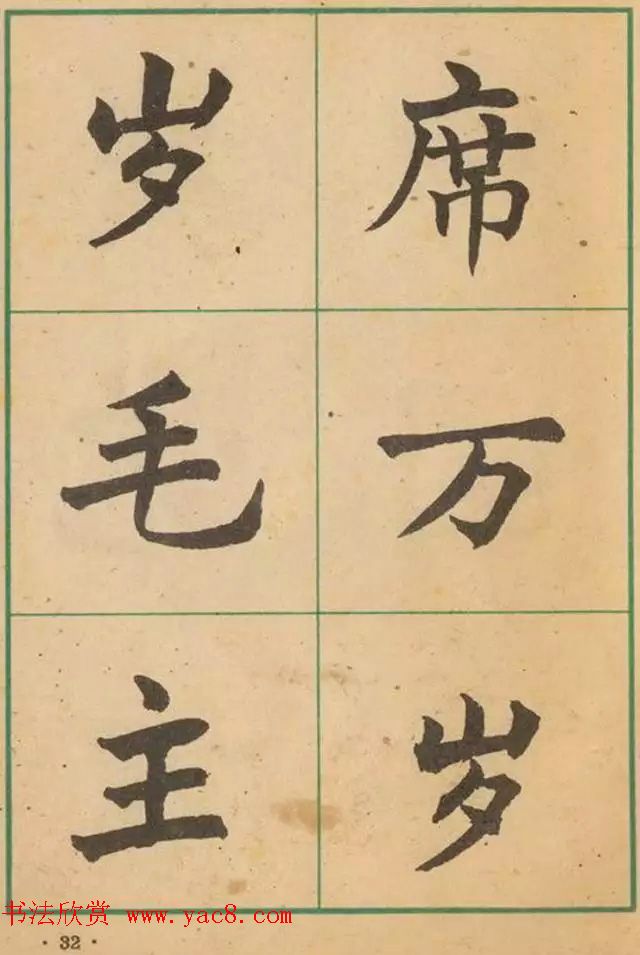 席万岁
岁毛主
书法欣赏 www.yac8.com
· 32 ·